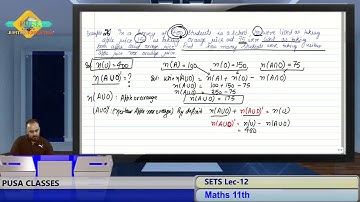 JUPIT
PUSA
Example 26 In a survey of 400 students in a school, 100 were listed as taking
apple juice, 150 as taking orange juice and 75 were listed as taking
both apple and orange juice. Find how many students were taking neither
apple juice nor orange juice.
n(U) = 400 n(A) = 100 n(O) = 150, n(A∩O) = 75
n(A∪O)' = ? n(A∪O) = n(A) + n(O) - n(A∩O)
= 100 + 150 - 75
= 250 - 75
n(A∪O) = 175
n(A∪O)' + n(A∪O) = n(U)
n(A∪O)' = n(U) - n(A∪O)
= 400
PUSA CLASSES
SETS Lec-12
Maths 11th